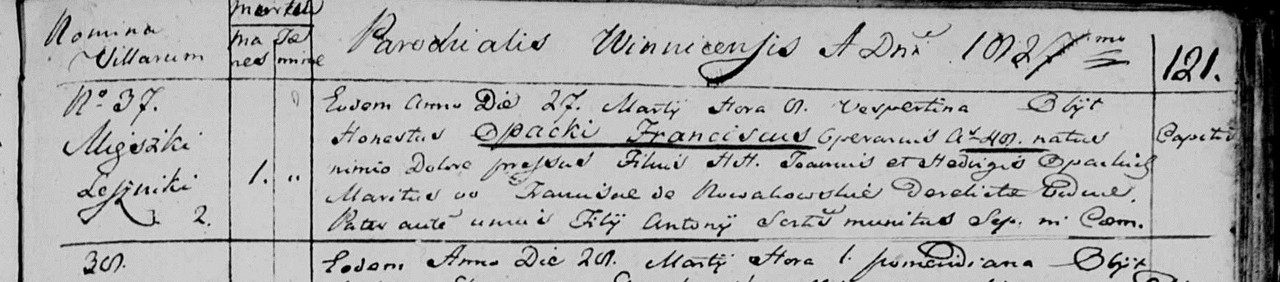 Nomina
Villarum
mortui
ma
res
Fae
minae
Parochialis Winnicensis A Dnī 1827mo
121.
No 37.
Leśniki
2.
1. "
Eodem Anno Die 27. Martij Hora 8. Vespertina Obijt
Honestus Opacki Franciscus Operarius natus
nimio Dolore pressus Filius HH. Joannis et Hedvigis Opackich
Maritus Franciscae de Nowakowskie Derelictae Viduae.
Pater autē unius Filij Antonij Scrtīs munitus Sep. in Coem.
Capitis
38.
Eodem Anno Die 28. Martij Hora 1. pomeridiana Obijt